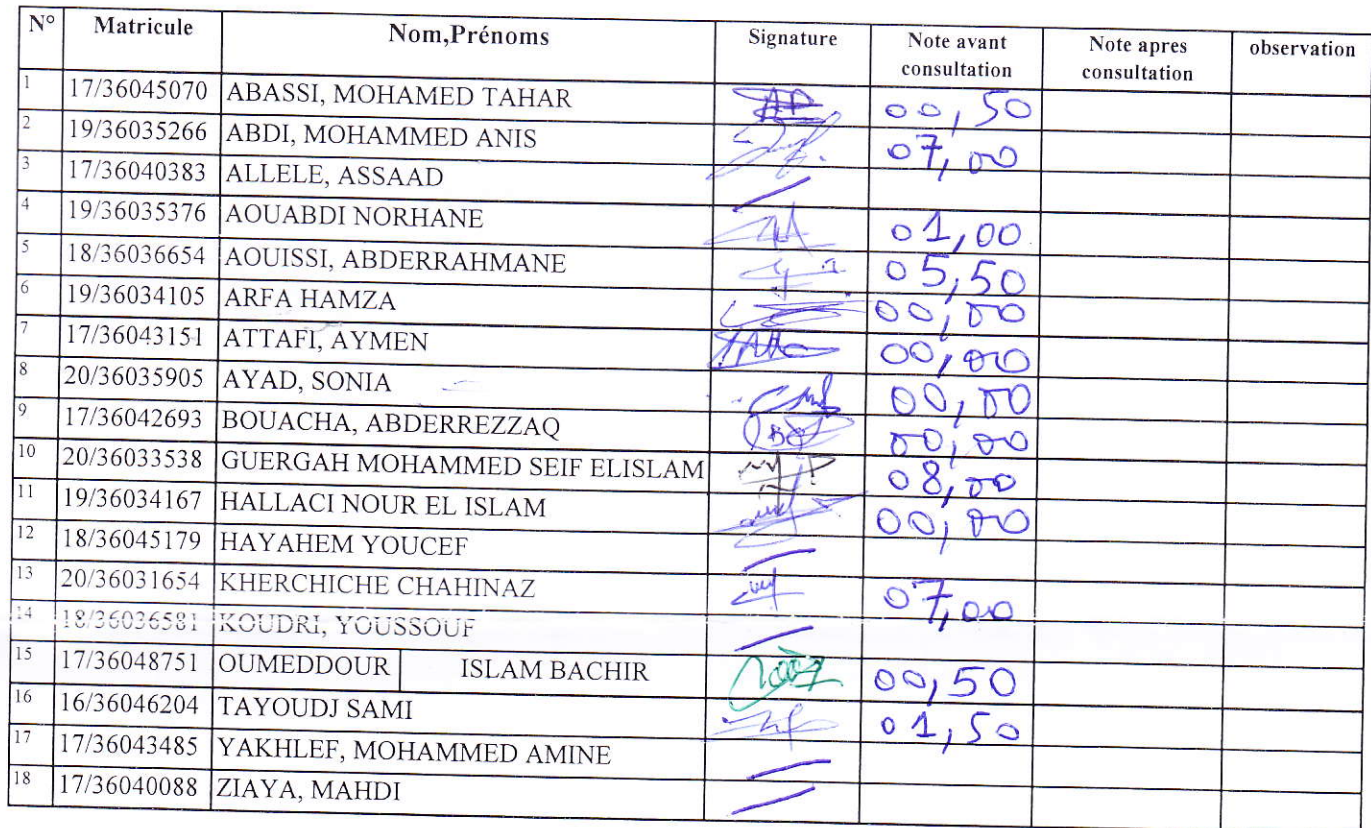 N° Matricule Nom,Prénoms Signature Note avant consultation Note apres consultation observation
1 17/36045070 ABASSI, MOHAMED TAHAR 00,50
2 19/36035266 ABDI, MOHAMMED ANIS 07,00
3 17/36040383 ALLELE, ASSAAD
4 19/36035376 AOUABDI NORHANE 01,00
5 18/36036654 AOUISSI, ABDERRAHMANE 05,50
6 19/36034105 ARFA HAMZA 00,00
7 17/36043151 ATTAFI, AYMEN 00,00
8 20/36035905 AYAD, SONIA 00,00
9 17/36042693 BOUACHA, ABDERREZZAQ 00,00
10 20/36033538 GUERGAH MOHAMMED SEIF ELISLAM 08,00
11 19/36034167 HALLACI NOUR EL ISLAM 00,00
12 18/36045179 HAYAHEM YOUCEF
13 20/36031654 KHERCHICHE CHAHINAZ 07,00
14 18/36036581 KOUDRI, YOUSSOUF
15 17/36048751 OUMEDDOUR ISLAM BACHIR 00,50
16 16/36046204 TAYOUDJ SAMI 01,50
17 17/36043485 YAKHLEF, MOHAMMED AMINE
18 17/36040088 ZIAYA, MAHDI